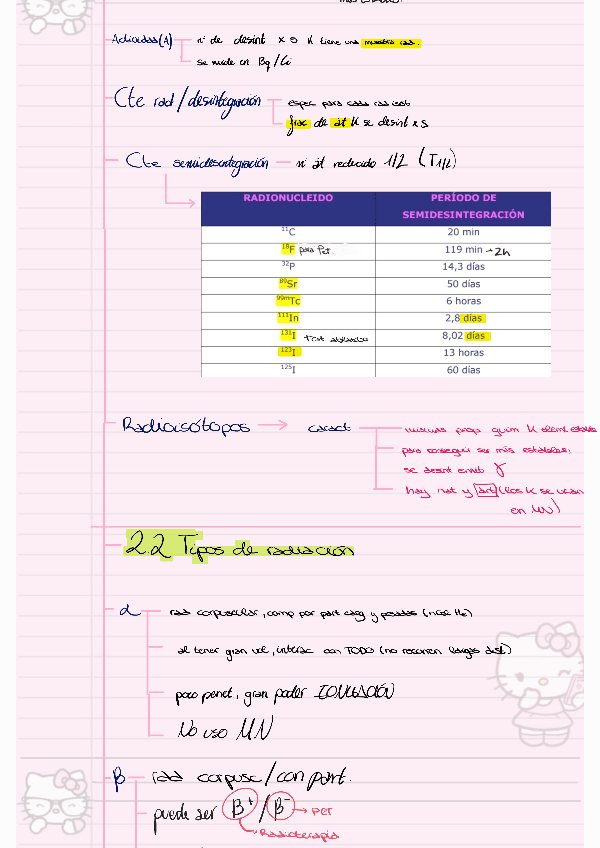 Actividad (A) nº de desint x s k tiene una muestra rad.
se mide en Bq/Ci
Cte rad/desintegración espec para cada rad isót
frac de át k se desint x s
Cte semidesintegración nº át reducido 1/2 (T1/2)
RADIONUCLEIDO PERÍODO DE SEMIDESINTEGRACIÓN
¹¹C 20 min
¹⁸F para Pet 119 min → 2h
³²P 14,3 días
⁸⁹Sr 50 días
⁹⁹ᵐTc 6 horas
¹¹¹In 2,8 días
¹³¹I 8,02 días
¹²³I 13 horas
¹²⁵I 60 días
Radioisótopos → caract mismas prop quím k elem estable
para conseguir ser más estables,
se desint emit γ
hay nat y art (los k se usan
en MN)
2.2 Tipos de radiación
α rad corpuscular, comp por part carg y pesadas (núc He)
al tener gran vol, interac con TODO (no recorren largas dist)
poco penet, gran poder IONIZACIÓN
No uso MN
β rad corpusc/con part.
puede ser β⁺/β⁻ → PET
Radioterapia